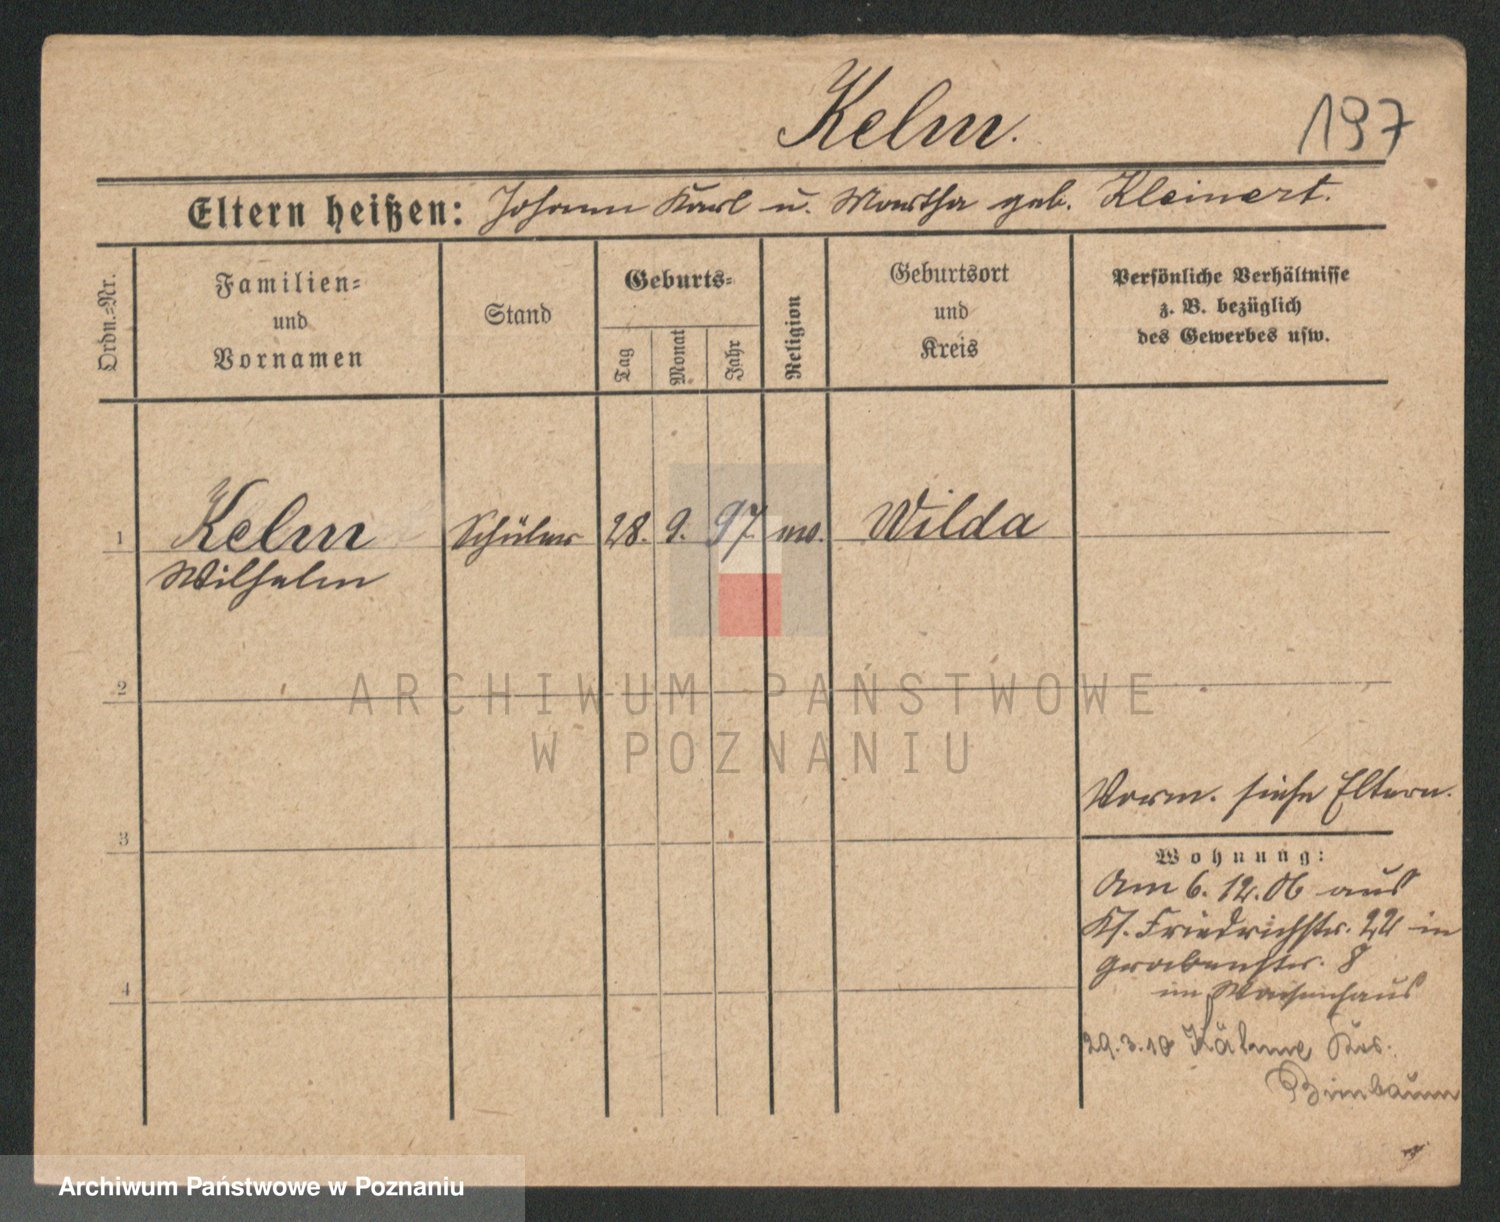 Kelm.
197
Eltern heißen: Johann Karl u. Martha geb. Kleinert.
Ordn.-Nr.
Familien-
und
Vornamen
Stand
Geburts-
Tag
Monat
Jahr
Religion
Geburtsort
und
Kreis
Persönliche Verhältnisse
z. B. bezüglich
des Gewerbes usw.
1 Kelm Schüler 28. 9. 97. ev. Wilda
Wilhelm
2
3
4
Vorm. siehe Eltern.
Wohnung:
Am 6. 12. 06 aus
Kl. Friedrichstr. 22 in
Grabenstr. 8
im Waisenhaus
29.3.10 Krs.
Birnbaum
ARCHIWUM PAŃSTWOWE
W POZNANIU
Archiwum Państwowe w Poznaniu